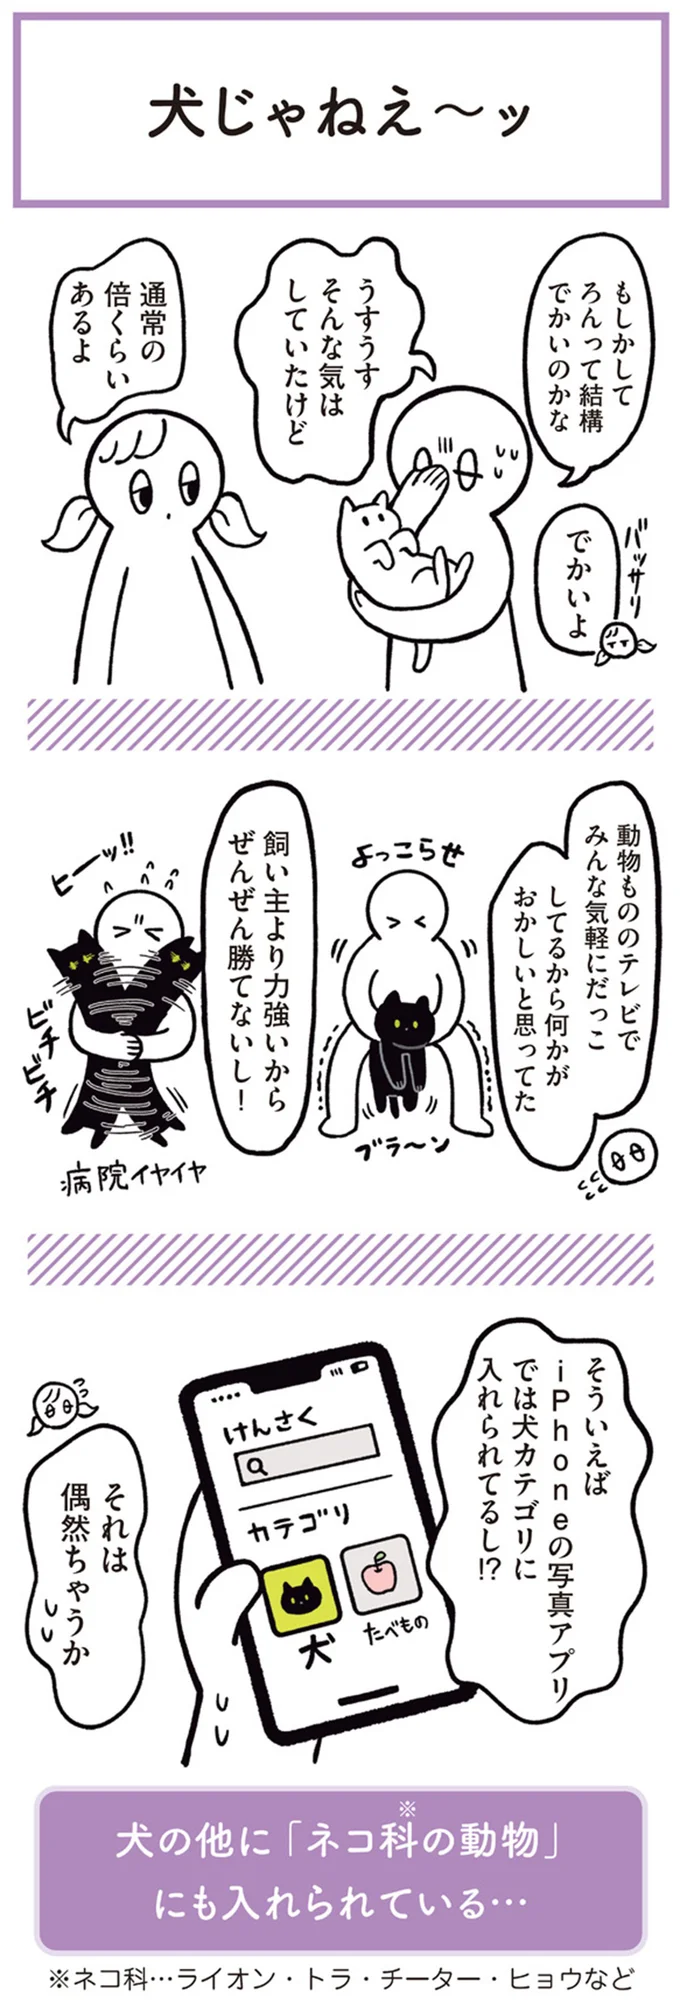 犬じゃねえ～ッ
もしかして
ろんって結構
でかいのかな
バッサリ
でかいよ
うすうす
そんな気は
していたけど
通常の
倍くらい
あるよ
動物もののテレビで
みんな気軽にだっこ
してるから何かが
おかしいと思ってた
よっこらせ
ブラ～ン
飼い主より力強いから
ぜんぜん勝てないし！
ヒーッ!!
ビチ
ビチ
病院イヤイヤ
そういえば
iPhoneの写真アプリ
では犬カテゴリに
入れられてるし!?
けんさく
カテゴリ
犬
たべもの
それは
偶然ちゃうか
犬の他に「ネコ科※の動物」
にも入れられている…
※ネコ科…ライオン・トラ・チーター・ヒョウなど